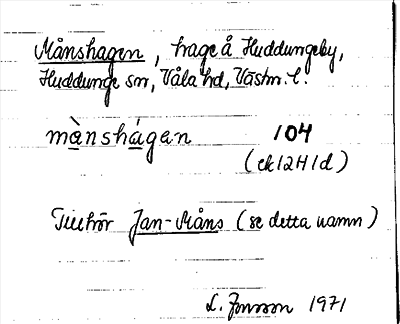 Månshagen, hage å Huddungeby,
Huddunge sn, Våla hd, Västm. l.
mànshágen 104
(ek 12H1d)
Tillhör Jan-Måns (se detta namn)
L. Jonsson 1971